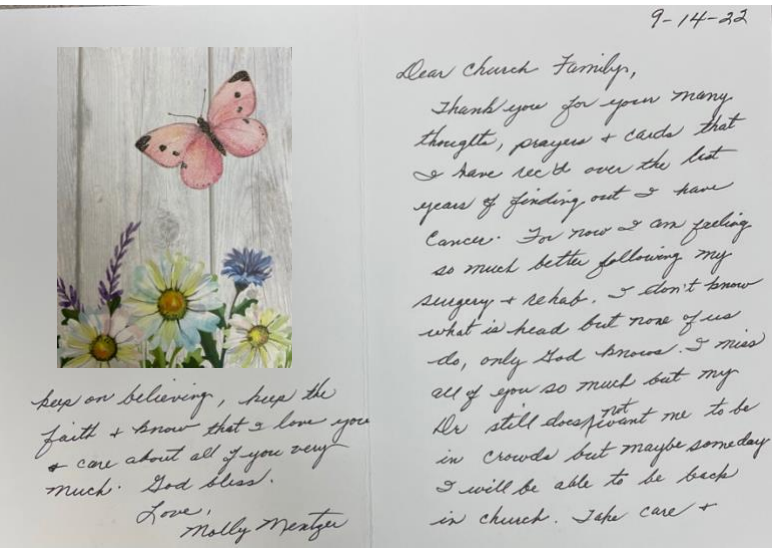 9-14-22
Dear Church Family,
Thank you for your many
thoughts, prayers + cards that
I have rec'd over the last
years of finding out I have
Cancer. For now I am feeling
so much better following my
surgery + rehab. I don't know
what is head but none of us
do, only God knows. I miss
all of you so much but my
Dr still does not want me to be
in crowds but maybe someday
I will be able to be back
in church. Take care +
keep on believing, keep the
faith + know that I love you
+ care about all of you very
much. God bless.
Love,
Molly Mentzer